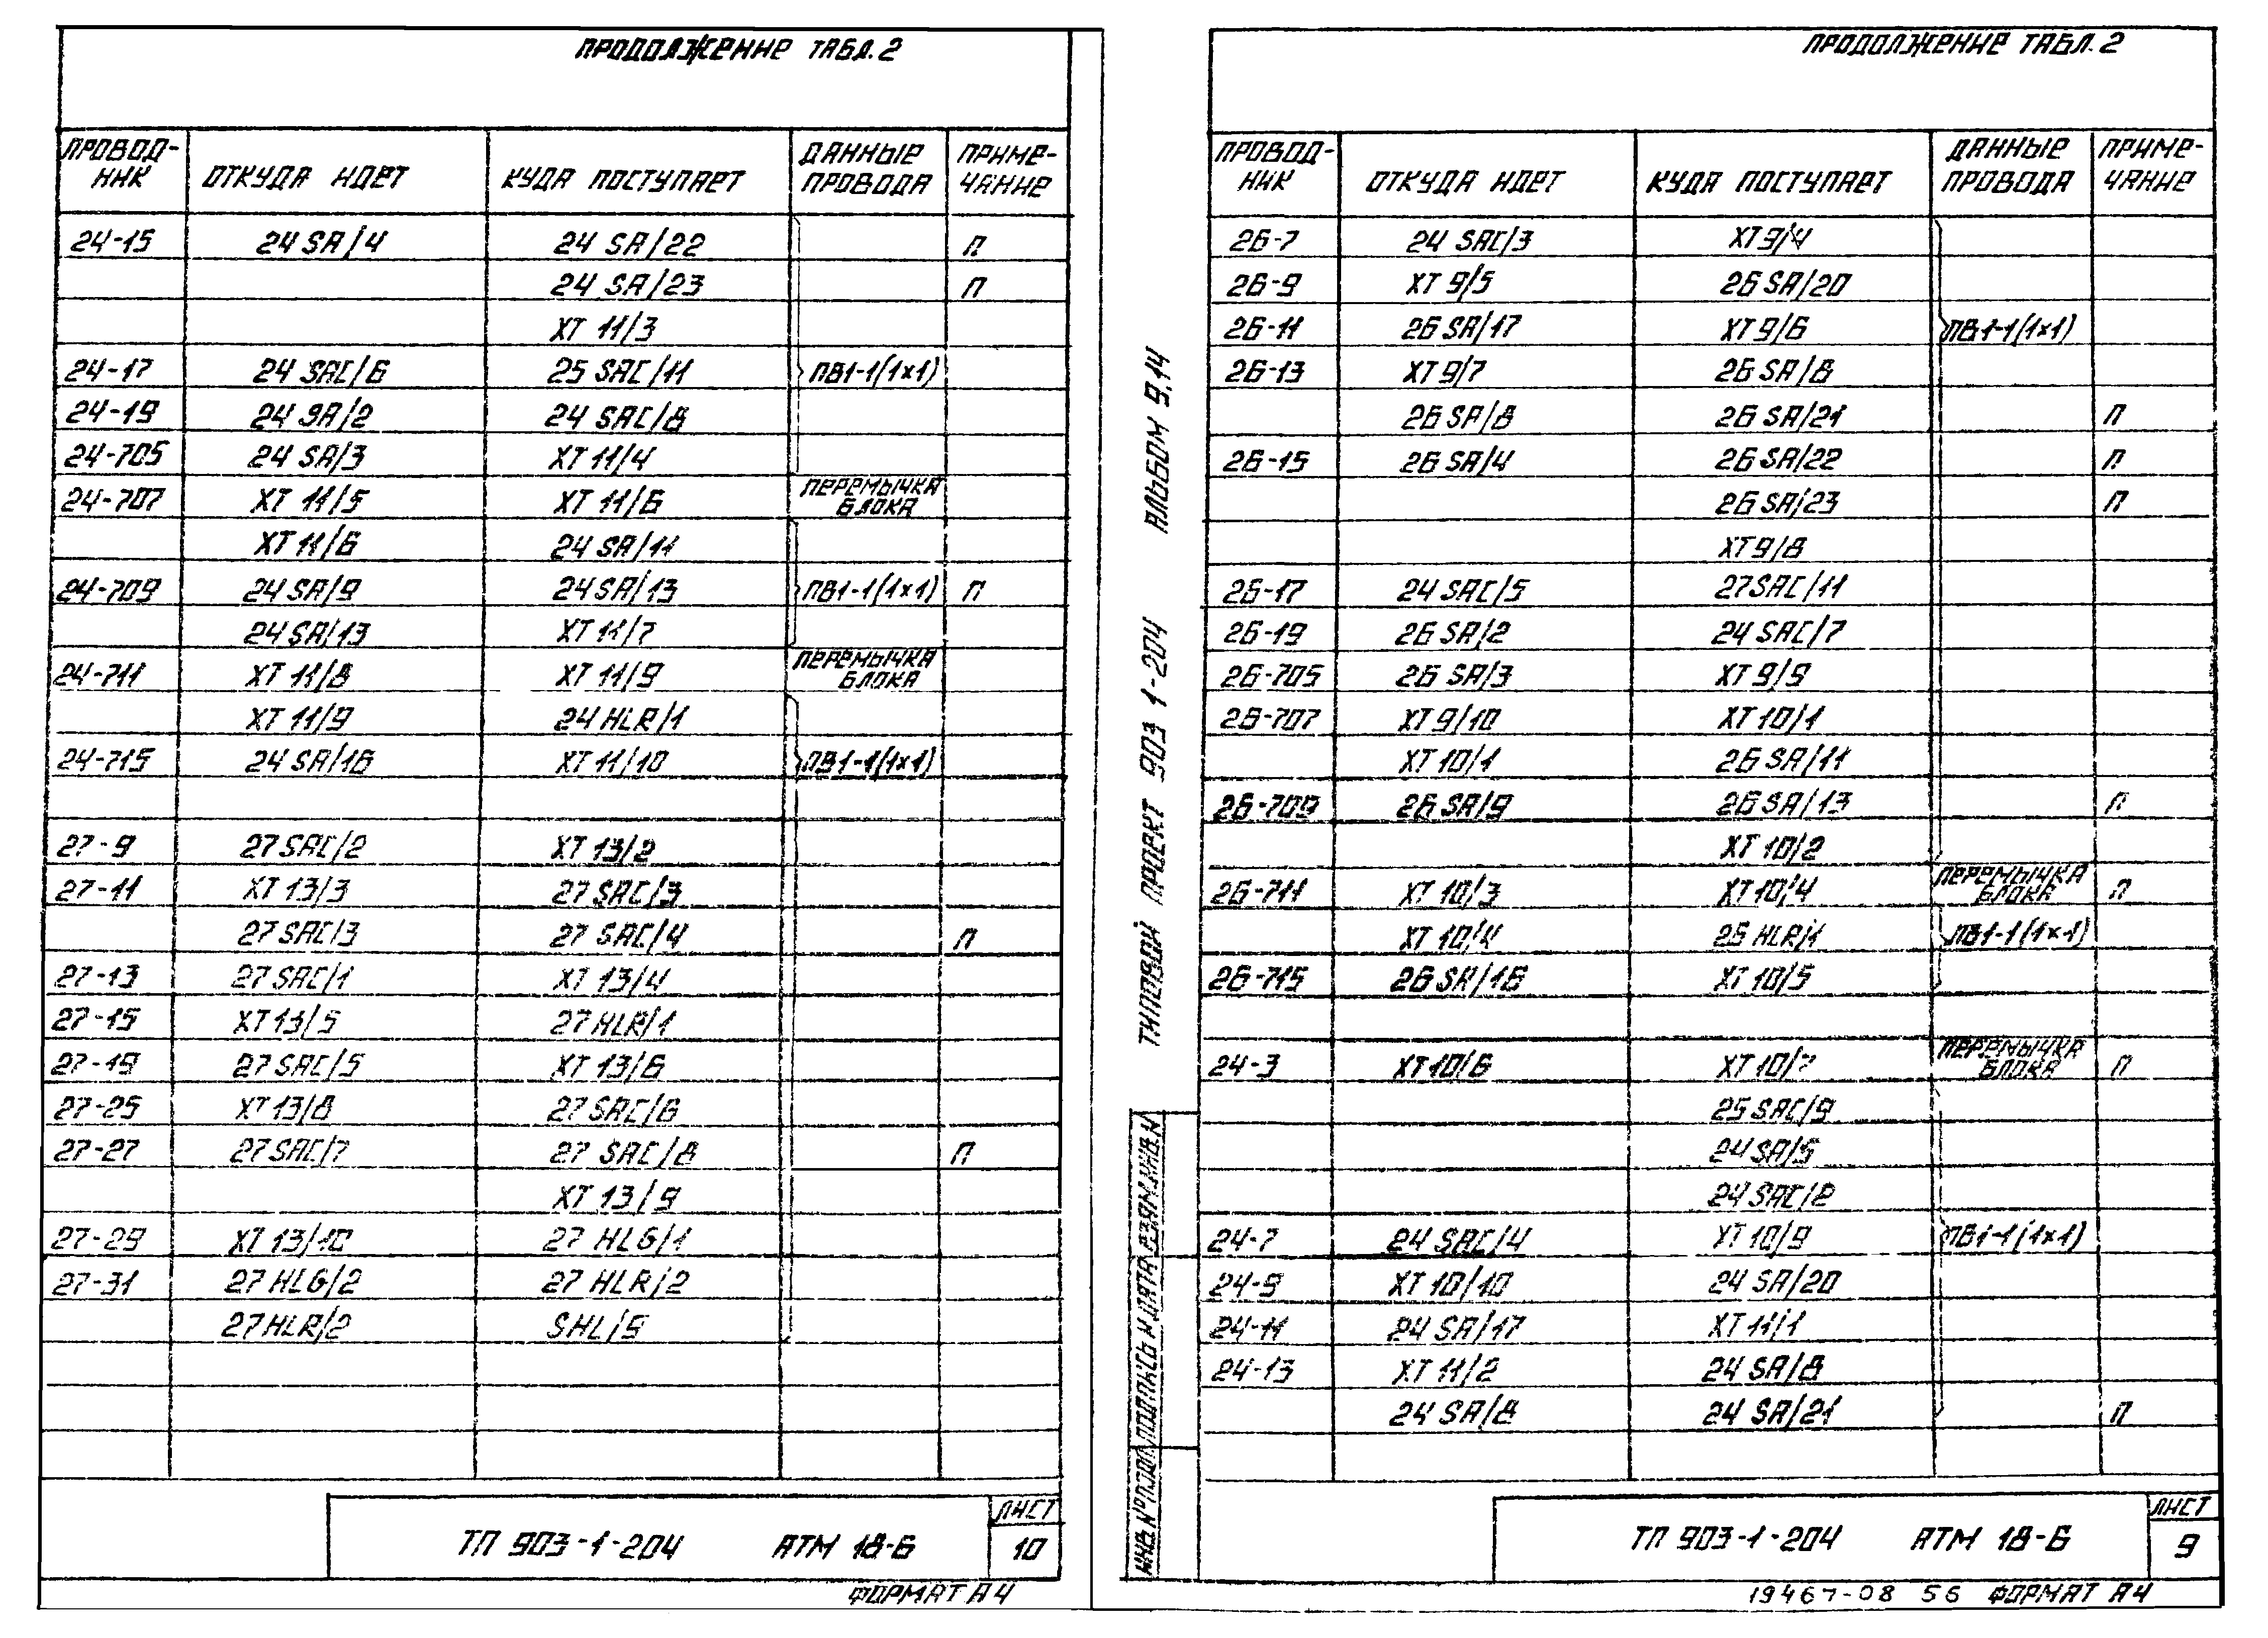 ПРОДОЛЖЕНИЕ ТАБЛ. 2
ПРОВОД-НИК ОТКУДА ИДЕТ КУДА ПОСТУПАЕТ ДАННЫЕ ПРОВОДА ПРИМЕ-ЧАНИЕ
24-15 24 SA/4 24 SA/22 П
24 SA/23 П
ХТ 11/3
24-17 24 SAC/6 25 SAC/11 ПВ1-1(1×1)
24-19 24 SA/2 24 SAC/8
24-705 24 SA/3 ХТ 11/4
24-707 ХТ 11/5 ХТ 11/6 ПЕРЕМЫЧКА БЛОКА
ХТ 11/6 24 SA/11
24-709 24 SA/9 24 SA/13 ПВ1-1(1×1) П
24 SA/13 ХТ 11/7
24-711 ХТ 11/8 ХТ 11/9 ПЕРЕМЫЧКА БЛОКА
ХТ 11/9 24 HLR/1
24-715 24 SA/16 ХТ 11/10 ПВ1-1(1×1)
27-9 27 SAC/2 ХТ 13/2
27-11 ХТ 13/3 27 SAC/3
27 SAC/3 27 SAC/4 П
27-13 27 SAC/1 ХТ 13/4
27-15 ХТ 13/5 27 HLR/1
27-19 27 SAC/5 ХТ 13/6
27-25 ХТ 13/8 27 SAC/6
27-27 27 SAC/7 27 SAC/8 П
ХТ 13/9
27-29 ХТ 13/10 27 HLG/1
27-31 27 HLG/2 27 HLR/2
27 HLR/2 SHL/5
ТП 903-1-204 АТМ 18-6
ЛИСТ
10
ФОРМАТ А4
ТИПОВОЙ ПРОЕКТ 903 1-204 АЛЬБОМ 9.14
ИНВ.N°ПОДЛ. ПОДПИСЬ И ДАТА ВЗАМ.ИНВ.N
ПРОДОЛЖЕНИЕ ТАБЛ. 2
ПРОВОД-НИК ОТКУДА ИДЕТ КУДА ПОСТУПАЕТ ДАННЫЕ ПРОВОДА ПРИМЕ-ЧАНИЕ
26-7 24 SAC/3 ХТ 9/4
26-9 ХТ 9/5 26 SA/20
26-11 26 SA/17 ХТ 9/6 ПВ1-1(1×1)
26-13 ХТ 9/7 26 SA/8
26 SA/8 26 SA/21 П
26-15 26 SA/4 26 SA/22 П
26 SA/23 П
ХТ 9/8
26-17 24 SAC/5 27 SAC/11
26-19 26 SA/2 24 SAC/7
26-705 26 SA/3 ХТ 9/9
26-707 ХТ 9/10 ХТ 10/1
ХТ 10/1 26 SA/11
26-709 26 SA/9 26 SA/13 П
ХТ 10/2
26-711 ХТ 10/3 ХТ 10/4 ПЕРЕМЫЧКА БЛОКА П
ХТ 10/4 26 HLR/1 ПВ1-1(1×1)
26-715 26 SA/16 ХТ 10/5
24-3 ХТ 10/6 ХТ 10/7 ПЕРЕМЫЧКА БЛОКА П
25 SAC/9
24 SA/5
24 SAC/2
24-7 24 SAC/4 ХТ 10/9 ПВ1-1(1×1)
24-9 ХТ 10/10 24 SA/20
24-11 24 SA/17 ХТ 11/1
24-13 ХТ 11/2 24 SA/8
24 SA/8 24 SA/21 П
ТП 903-1-204 АТМ 18-6
ЛИСТ
9
19467-08 56 ФОРМАТ А4